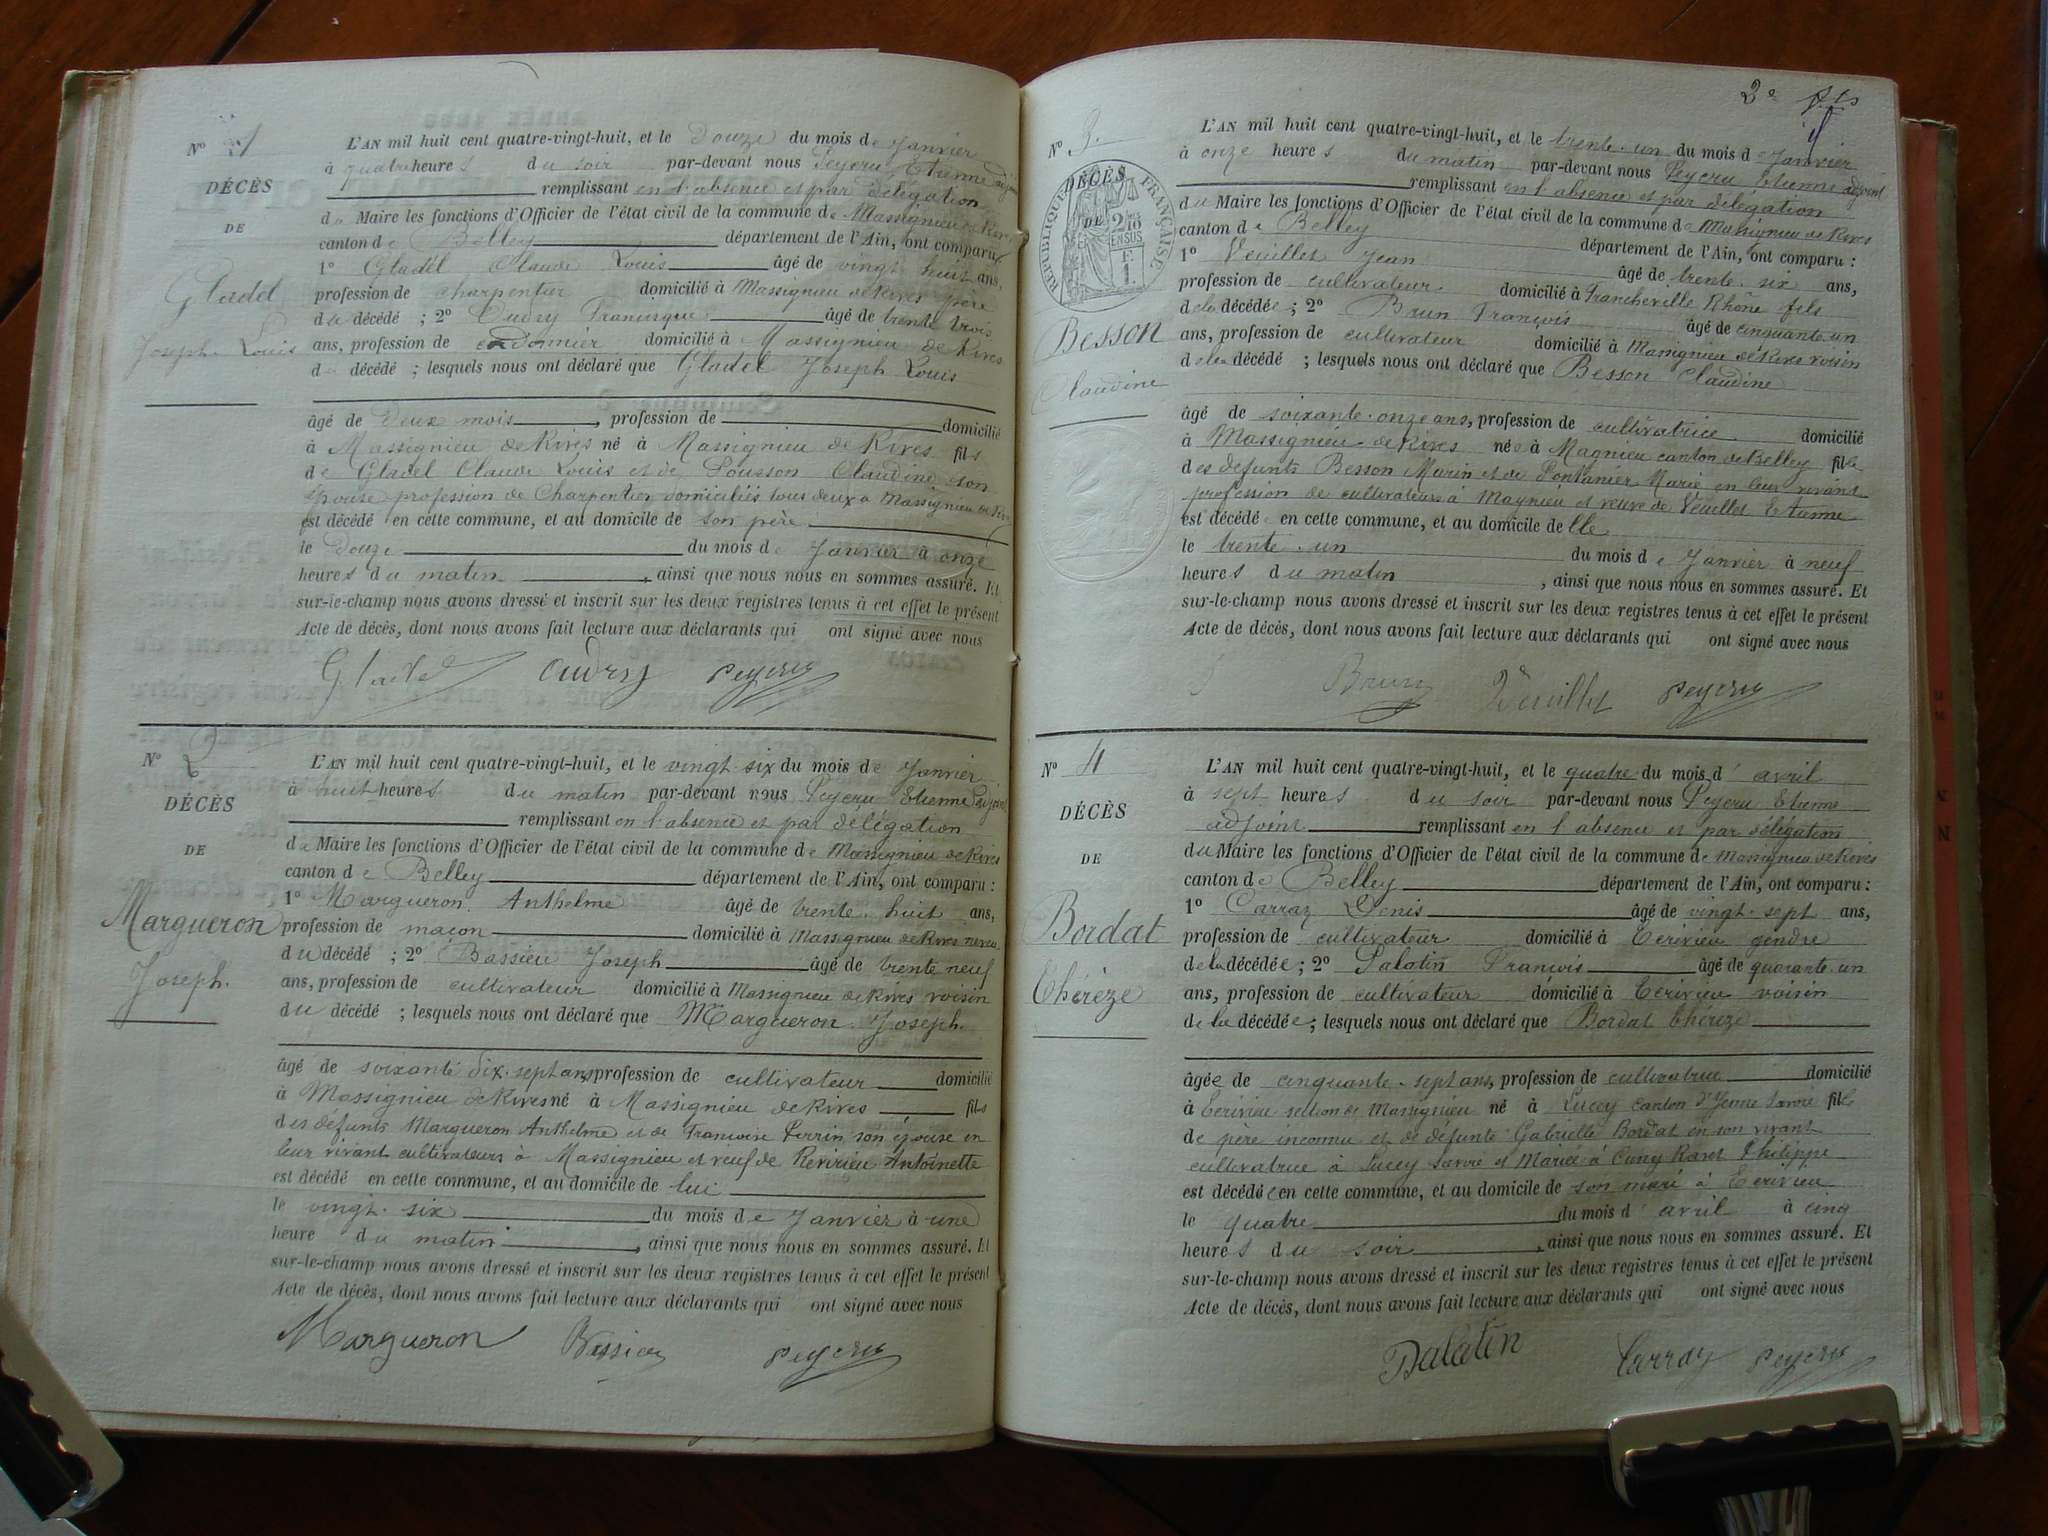 Nº 1
DÉCÈS
DE
Gladel
Joseph. Louis
L'AN mil huit cent quatre-vingt-huit, et le Douze du mois de Janvier
à quatre heures du soir par-devant nous Peyeru Etienne adjoint
remplissant en l'absence et par délégation
du Maire les fonctions d'Officier de l'état civil de la commune de Massignieu de Rives
canton de Belley département de l'Ain, ont comparu
1º Gladel Claude Louis âgé de vingt huit ans,
profession de charpentier domicilié à Massignieu de Rives père
du décédé ; 2º Cudry Francisque âgé de trente trois
ans, profession de cordonnier domicilié à Massignieu de Rives
du décédé ; lesquels nous ont déclaré que Gladel Joseph Louis
âgé de Deux mois, profession de domicilié
à Massignieu de Rives né à Massignieu de Rives fils
de Gladel Claude Louis et de Pousson Claudine son
épouse profession de Charpentier domiciliés tous deux à Massignieu de Rives
est décédé en cette commune, et au domicile de son père
le Douze du mois de Janvier à onze
heures du matin, ainsi que nous nous en sommes assuré. Et
sur-le-champ nous avons dressé et inscrit sur les deux registres tenus à cet effet le présent
Acte de décès, dont nous avons fait lecture aux déclarants qui ont signé avec nous
Gladel Cudry Peyeru
Nº 2
DÉCÈS
DE
Margueron
Joseph.
L'AN mil huit cent quatre-vingt-huit, et le vingt-six du mois de Janvier
à huit heures du matin par-devant nous Peyeru Etienne adjoint
remplissant en l'absence et par délégation
du Maire les fonctions d'Officier de l'état civil de la commune de Massignieu de Rives
canton de Belley département de l'Ain, ont comparu :
1º Margueron Anthelme âgé de trente-huit ans,
profession de maçon domicilié à Massignieu de Rives neveu
du décédé ; 2º Bassieu Joseph âgé de trente neuf
ans, profession de cultivateur domicilié à Massignieu de Rives voisin
du décédé ; lesquels nous ont déclaré que Margueron Joseph
âgé de soixante dix-sept ans, profession de cultivateur domicilié
à Massignieu de Rives né à Massignieu de Rives fils
des défunts Margueron Anthelme et de Francoise Perrin son épouse en
leur vivant cultivateurs à Massignieu et veuf de Revirieu Antoinette
est décédé en cette commune, et au domicile de lui
le vingt-six du mois de Janvier à une
heure du matin, ainsi que nous nous en sommes assuré. Et
sur-le-champ nous avons dressé et inscrit sur les deux registres tenus à cet effet le présent
Acte de décès, dont nous avons fait lecture aux déclarants qui ont signé avec nous
Margueron Bassieu Peyeru
2e
Nº 3.
DÉCÈS
DE
RÉPUBLIQUE FRANÇAISE
Besson
Claudine
L'AN mil huit cent quatre-vingt-huit, et le trente-un du mois de Janvier
à onze heures du matin par-devant nous Peyeru Etienne adjoint
remplissant en l'absence et par délégation
du Maire les fonctions d'Officier de l'état civil de la commune de Massignieu de Rives
canton de Belley département de l'Ain, ont comparu :
1º Veuillet Jean âgé de trente-six ans,
profession de cultivateur domicilié à Francheville Rhône fils
de la décédée ; 2º Brun François âgé de cinquante un
ans, profession de cultivateur domicilié à Massignieu de Rives voisin
de la décédé ; lesquels nous ont déclaré que Besson Claudine
âgé de soixante-onze ans, profession de cultivatrice domicilié
à Massignieu de Rives née à Magnieu canton de Belley fille
des défunts Besson Marin et de Pontanier Marie en leur vivant
profession de cultivateurs à Magnieu et veuve de Veuillet Etienne
est décédé en cette commune, et au domicile d'elle
le trente-un du mois de Janvier à neuf
heures du matin, ainsi que nous nous en sommes assuré. Et
sur-le-champ nous avons dressé et inscrit sur les deux registres tenus à cet effet le présent
Acte de décès, dont nous avons fait lecture aux déclarants qui ont signé avec nous
Brun Veuillet Peyeru
Nº 4
DÉCÈS
DE
Bordat
Thérèze
L'AN mil huit cent quatre-vingt-huit, et le quatre du mois d'avril
à sept heures du soir par-devant nous Peyeru Etienne
adjoint remplissant en l'absence et par délégation
du Maire les fonctions d'Officier de l'état civil de la commune de Massignieu de Rives
canton de Belley département de l'Ain, ont comparu :
1º Carraz Denis âgé de vingt-sept ans,
profession de cultivateur domicilié à Ecrivieu gendre
de la décédée ; 2º Palatin François âgé de quarante-un
ans, profession de cultivateur domicilié à Ecrivieu voisin
de la décédée ; lesquels nous ont déclaré que Bordat Thérèze
âgée de cinquante-sept ans, profession de cultivatrice domicilié
à Ecrivieu section de Massignieu né à Lucey canton d'Yenne Savoie fille
de père inconnu et de défunte Gabrielle Bordat en son vivant
cultivatrice à Lucey Savoie et Mariée à Philippe
est décédée en cette commune, et au domicile de son mari à Ecrivieu
le quatre du mois d'avril à cinq
heures du soir, ainsi que nous nous en sommes assuré. Et
sur-le-champ nous avons dressé et inscrit sur les deux registres tenus à cet effet le présent
Acte de décès, dont nous avons fait lecture aux déclarants qui ont signé avec nous
Palatin Carraz Peyeru